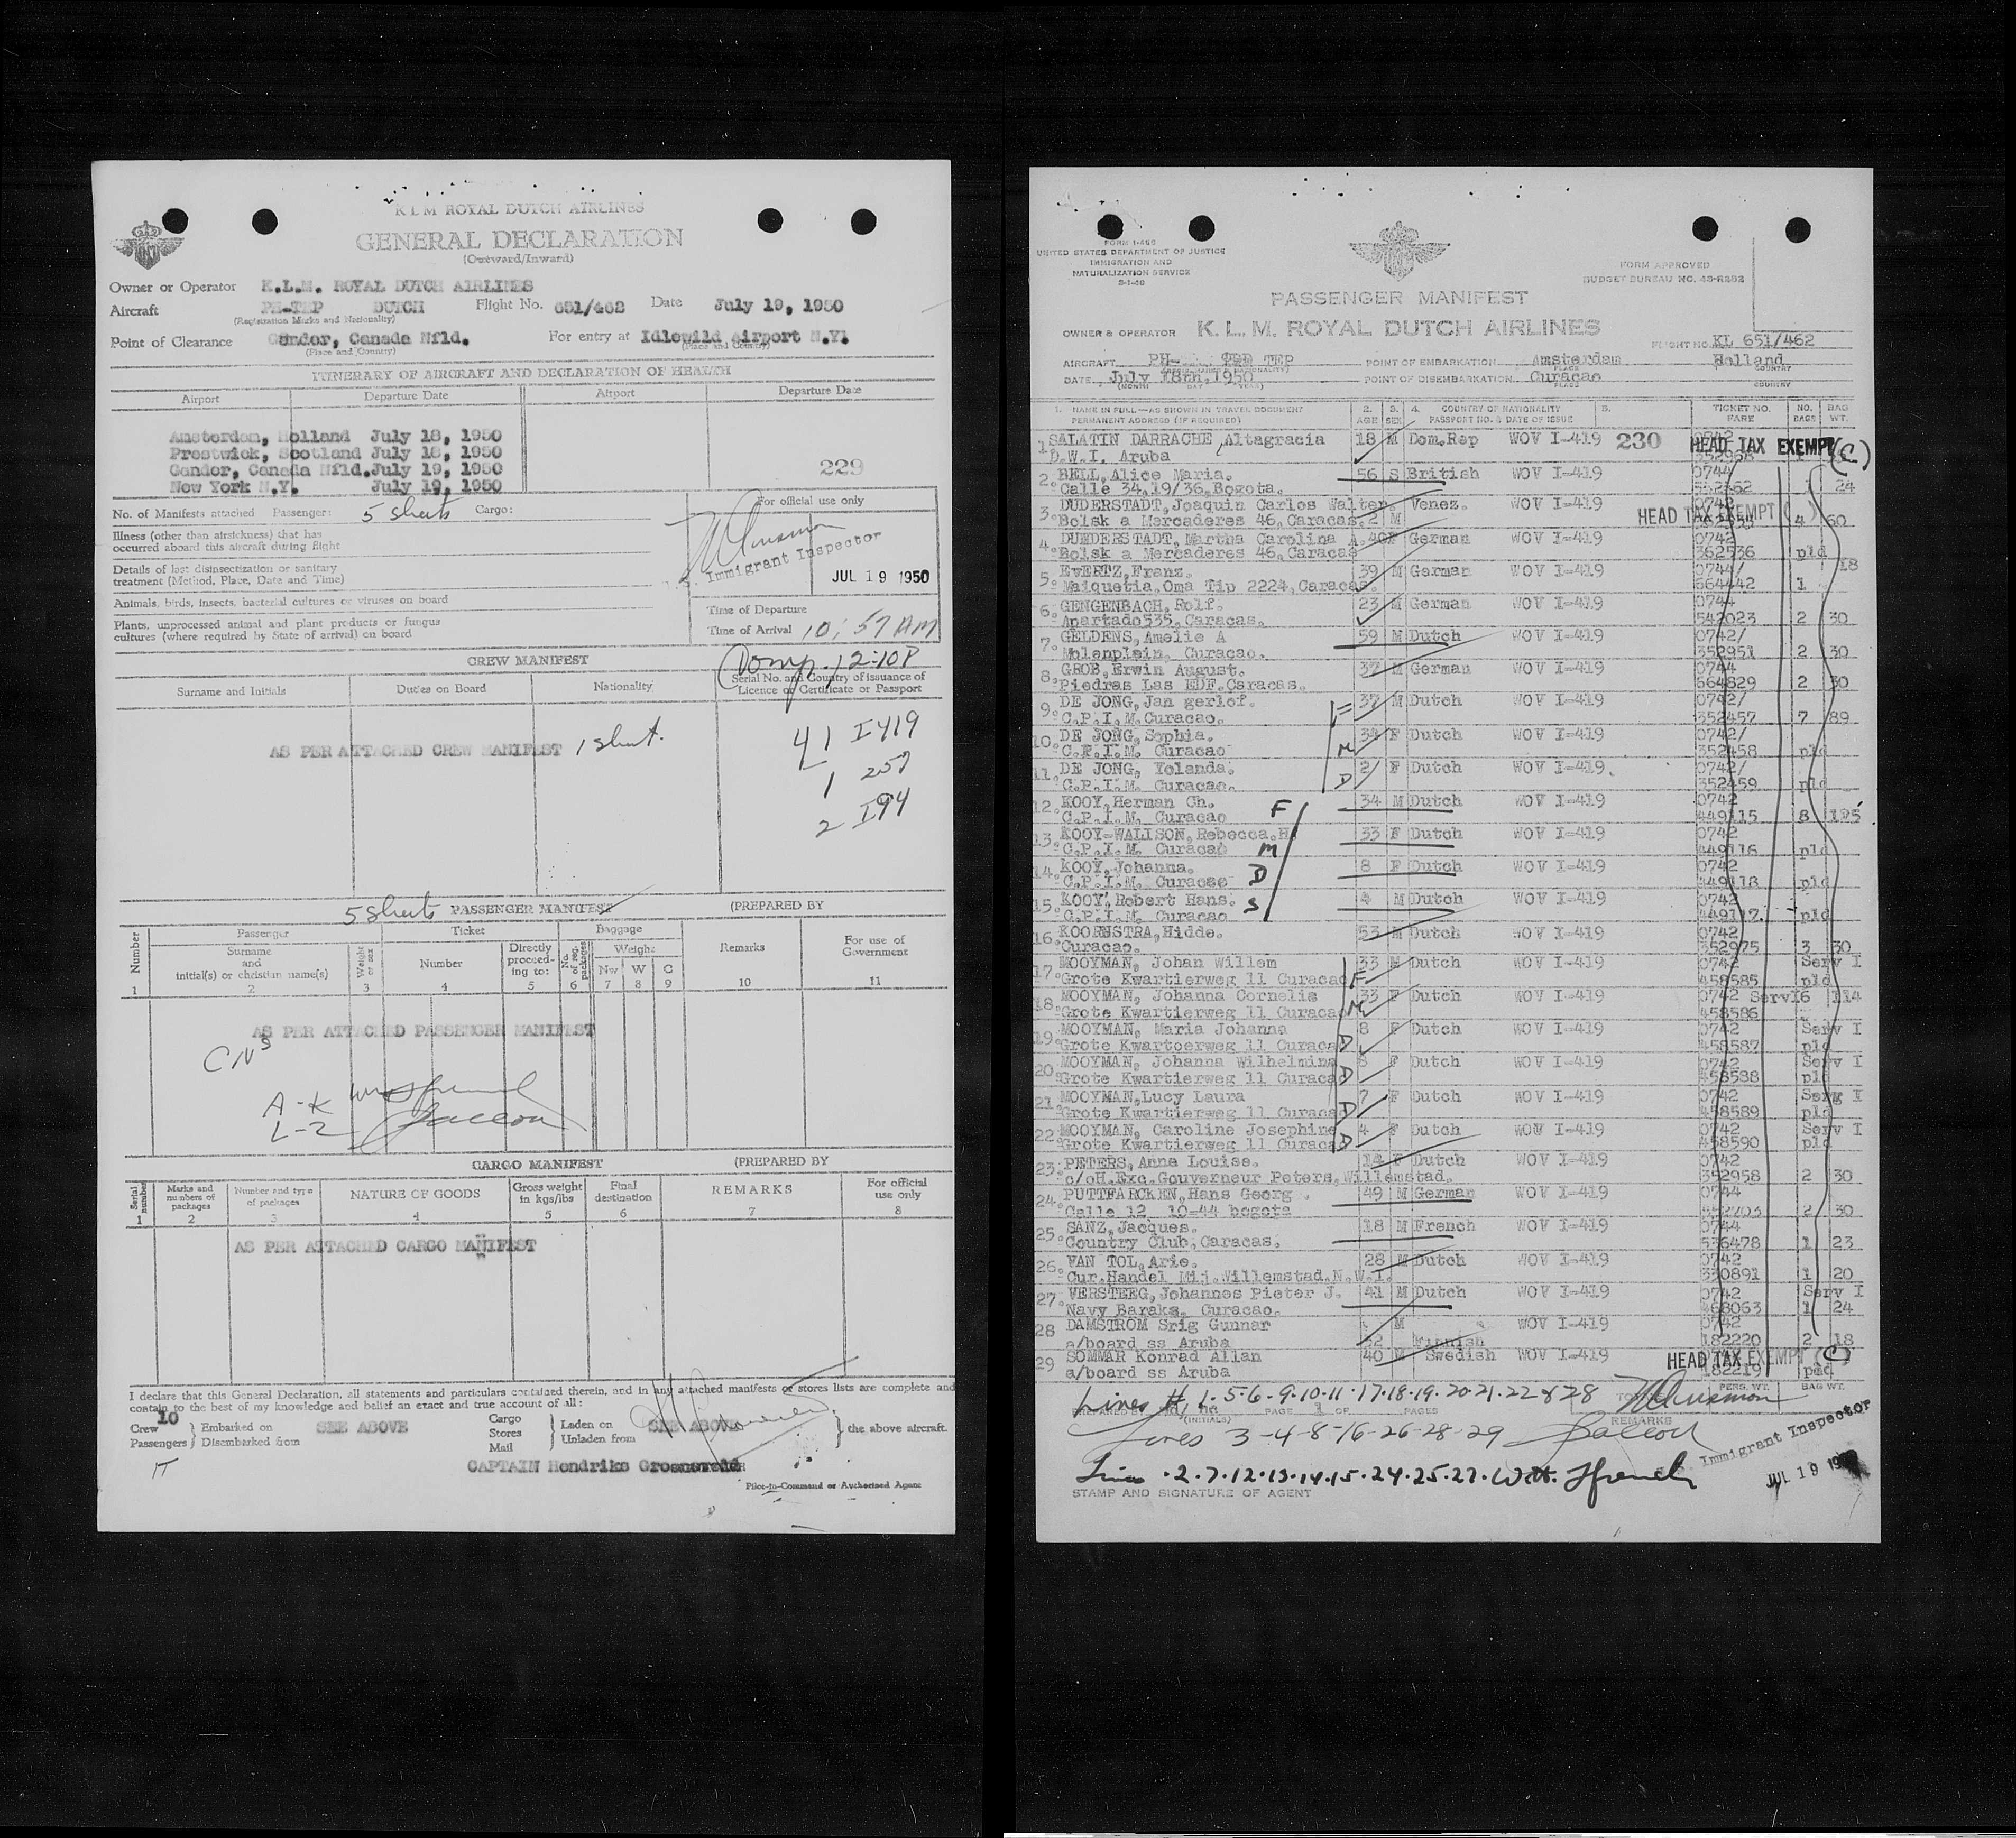 K L M ROYAL DUTCH AIRLINES
GENERAL DECLARATION
(Outward/Inward)
Owner or Operator K.L.M. ROYAL DUTCH AIRLINES
Aircraft PH-TEP DUTCH Flight No. 651/462 Date July 19, 1950
(Registration Marks and Nationality)
Point of Clearance Gander, Canada Nfld. For entry at Idlewild Airport N.Y.
(Place and Country) (Place and Country)
ITINERARY OF AIRCRAFT AND DECLARATION OF HEALTH
Airport Departure Date Airport Departure Date
Amsterdam, Holland July 18, 1950
Prestwick, Scotland July 18, 1950
Gander, Canada Nfld. July 19, 1950
New York N.Y. July 19, 1950
229
No. of Manifests attached Passenger: 5 sheets Cargo:
For official use only
Illness (other than airsickness) that has
occurred aboard this aircraft during flight
Details of last disinsectization or sanitary
treatment (Method, Place, Date and Time)
Immigrant Inspector
JUL 19 1950
Animals, birds, insects, bacterial cultures or viruses on board
Plants, unprocessed animal and plant products or fungus
cultures (where required by State of arrival) on board
Time of Departure
Time of Arrival 10:57 AM
Comp. 12:10P
CREW MANIFEST
Surname and Initials Duties on Board Nationality Serial No. and Country of issuance of
Licence or Certificate or Passport
AS PER ATTACHED CREW MANIFEST 1 sheet.
41 I419
1 257
2 I94
5 sheets PASSENGER MANIFEST (PREPARED BY
Number Passenger Ticket Baggage Remarks For use of
Government
Surname
and
initial(s) or christian name(s) Weight or sex Number Directly
proceed-
ing to: No. of reg. packages Weight
Nw W C
1 2 3 4 5 6 7 8 9 10 11
AS PER ATTACHED PASSENGER MANIFEST
CNS
A-K
L-Z
CARGO MANIFEST (PREPARED BY
Serial number Marks and
numbers of
packages Number and type
of packages NATURE OF GOODS Gross weight
in kgs/lbs Final
destination REMARKS For official
use only
1 2 3 4 5 6 7 8
AS PER ATTACHED CARGO MANIFEST
I declare that this General Declaration, all statements and particulars contained therein, and in any attached manifests or stores lists are complete and
contain to the best of my knowledge and belief an exact and true account of all:
10
Crew Embarked on SEE ABOVE Cargo Laden on SEE ABOVE the above aircraft.
Passengers Disembarked from Stores Unladen from
Mail
CAPTAIN Hendriks
Pilot-in-Command or Authorised Agent
FORM I-466
UNITED STATES DEPARTMENT OF JUSTICE
IMMIGRATION AND
NATURALIZATION SERVICE
FORM APPROVED
BUDGET BUREAU NO. 43-R282
PASSENGER MANIFEST
OWNER & OPERATOR K. L. M. ROYAL DUTCH AIRLINES
FLIGHT NO. KL 651/462
AIRCRAFT PH- TEP POINT OF EMBARKATION Amsterdam Holland
DATE July 18th, 1950 POINT OF DISEMBARKATION Curacao
1. NAME IN FULL—AS SHOWN IN TRAVEL DOCUMENT 2. 3. 4. COUNTRY OF NATIONALITY 5. TICKET NO. NO. BAG
PERMANENT ADDRESS (IF REQUIRED) AGE SEX PASSPORT NO. & DATE OF ISSUE FARE BAGS WT.
1. SALATIN DARRACHE, Altagracia 18 M Dom.Rep WOV I-419 230 HEAD TAX EXEMPT (C)
D.W.I. Aruba
2. BELL, Alice Maria. 56 S British WOV I-419 0744
Calle 34,19/36,Bogota. 1 24
3. DUDERSTADT, Joaquin Carlos Walter. Venez. WOV I-419 0742
Bolsk a Mercaderes 46,Caracas.2 M HEAD TAX EXEMPT ( ) 4 60
4. DUNDERSTADT, Martha Carolina A.40F German WOV I-419 0742
Bolsk a Mercaderes 46,Caracas 362536 pld
5. EvERTZ,Franz. 39 M German WOV I-419 0744/ 18
Maiquetia,Oma Tip 2224,Caracas. 664442 1
6. GENGENBACH, Rolf. 23 M German WOV I-419 0744
Apartado535,Caracas. 542023 2 30
7. GELDENS, Amelie A 59 M Dutch WOV I-419 0742/
Molenplein, Curacao. 352951 2 30
8. GROB,Erwin August. 37 M German WOV I-419 0744
Piedras Las EDF.Caracas. 664829 2 30
9. DE JONG, Jan gerlof. F 37 M Dutch WOV I-419 0742/
C.P.I.M.Curacao. 352457 7 89
10. DE JONG, Sophia. M 34 F Dutch WOV I-419 0742/
C.P.I.M. Curacao 352458 pld
11. DE JONG, Yolanda. D 2 F Dutch WOV I-419. 0742/
C.P.I.M. Curacao. 352459 pld
12. KOOY,Herman Ch. F 34 M Dutch WOV I-419 0742
C.P.I.M. Curacao 449115 8 125
13. KOOY-WALISON,Rebecca.H. 33 F Dutch WOV I-419 0742
C.P.I.M. Curacao M 449116 pld
14. KOOY,Johanna. 8 F Dutch WOV I-419 0742
C.P.I.M. Curacao D 449118 pld
15. KOOY,Robert Hans. S 4 M Dutch WOV I-419 0742
C.P.I.M. Curacao 449117. pld
16. KOORNSTRA,Hidde. 53 M Dutch WOV I-419 0742
Curacao. 352975 3 30
17. MOOYMAN, Johan Willem 33 M Dutch WOV I-419 0742 Serv I
Grote Kwartierweg 11 Curacao F 458585 pld
18. MOOYMAN, Johanna Cornelia 33 F Dutch WOV I-419 0742 ServI6 114
Grote Kwartierweg 11 Curacao M 458586
19. MOOYMAN, Maria Johanna 8 F Dutch WOV I-419 0742 Serv I
Grote Kwartoerweg 11 Curaca D 458587 pld
20. MOOYMAN, Johanna Wilhelmina 8 F Dutch WOV I-419 0742 Serv I
Grote Kwartierweg 11 Curaca D 458588 pld
21. MOOYMAN,Lucy Laura 7 F Dutch WOV I-419 0742 Serv I
Grote Kwartierweg 11 Curaca D 458589 pld
22. MOOYMAN, Caroline Josephine 4 F Dutch WOV I-419 0742 Serv I
Grote Kwartierweg 11 Curaca D 458590 pld
23. PETERS,Anna Louise. 14 F Dutch WOV I-419 0742
c/oH.Exc.Gouverneur Peters,Willemstad. 352958 2 30
24. PUTTFARCKEN,Hans Georg . 49 M German WOV I-419 0744
Calle 12 10-44 bogota 2 30
25. SANZ,Jacques. 18 M French WOV I-419 0744
Country Club,Caracas. 536478 1 23
26. VAN TOL,Arie. 28 M Dutch WOV I-419 0742
Cur.Handel Mij.Willemstad.N.W.I. 330891 1 20
27. VERSTEEG,Johannes Pieter J. 41 M Dutch WOV I-419 0742 Serv I
Navy Baraks. Curacao. 468063 1 24
28 DAMSTROM Srig Gunnar M WOV I-419 0742
a/board ss Aruba Finnish 182220 2 18
29 SOMMAR Konrad Allan 40 M Swedish WOV I-419 HEAD TAX EXEMPT (C)
a/board ss Aruba 182219 pld
Lines # 1-5-6-9-10-11-17-18-19-20-21-22 & 28
PAGE 1 OF PAGES PERS. WT. BAG WT.
(INITIALS) REMARKS
Lines 3-4-8-16-26-28-29
Immigrant Inspector
Lines 2.7.12.13.14.15.24.25.27. Wm. French
JUL 19
STAMP AND SIGNATURE OF AGENT